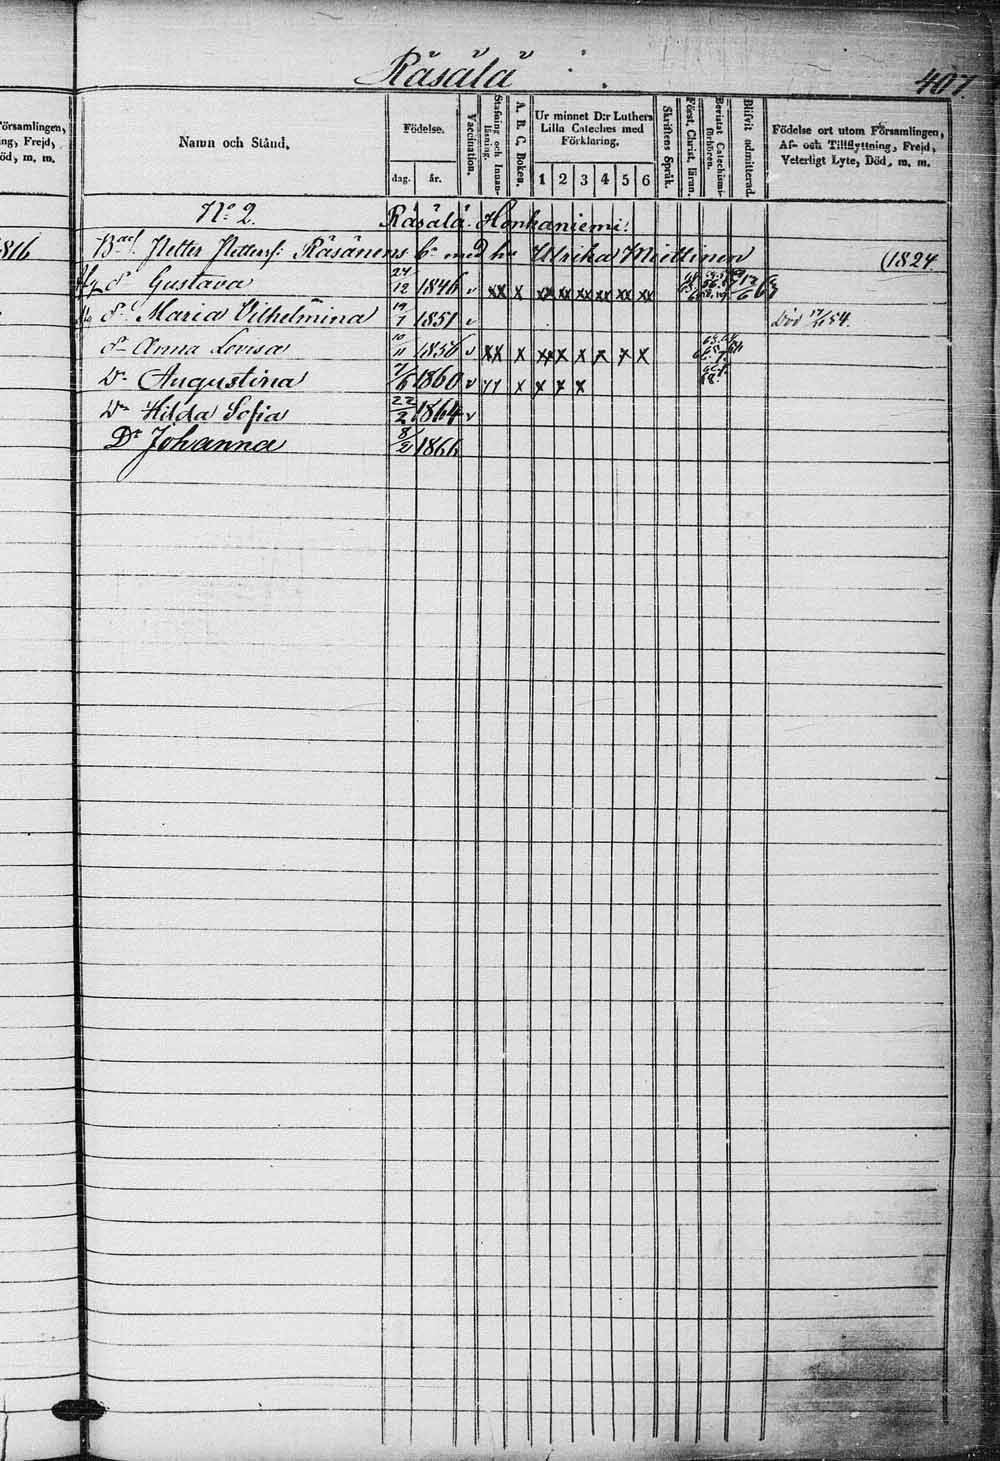 Räsälä
407
Församlingen,
ing, Frejd,
öd, m. m.
Namn och Stånd.
Födelse.
dag. år.
Vaccination.
Stafning och Innan-
läsning.
A. B. C, Boken.
Ur minnet D:r Luthers
Lilla Cateches med
Förklaring.
1 2 3 4 5 6
Skriftens Språk.
Först. Christ. läran.
Bevistat Catechismi-
förhören.
Blifvit admitterad.
Födelse ort utom Församlingen,
Af- och Tillflyttning, Frejd,
Veterligt Lyte, Död, m. m.
No 2. Räsälä Honkaniemi:
816
Petter Petterss: Räsänens med hu Ulrika Miettinen (1824.
Gustava 24/12 1846 v xx x xx xx xx xx xx xx
Dr Maria Vilhelmina 19/7 1851 v Död 54.
Dr Anna Lovisa 10/11 1856 v xx x xx x x x x x
Dr Augustina 7/6 1860 v // x x x x
Dr Hilda Sofia 22/2 1864 v
Dr Johanna 8/2 1866